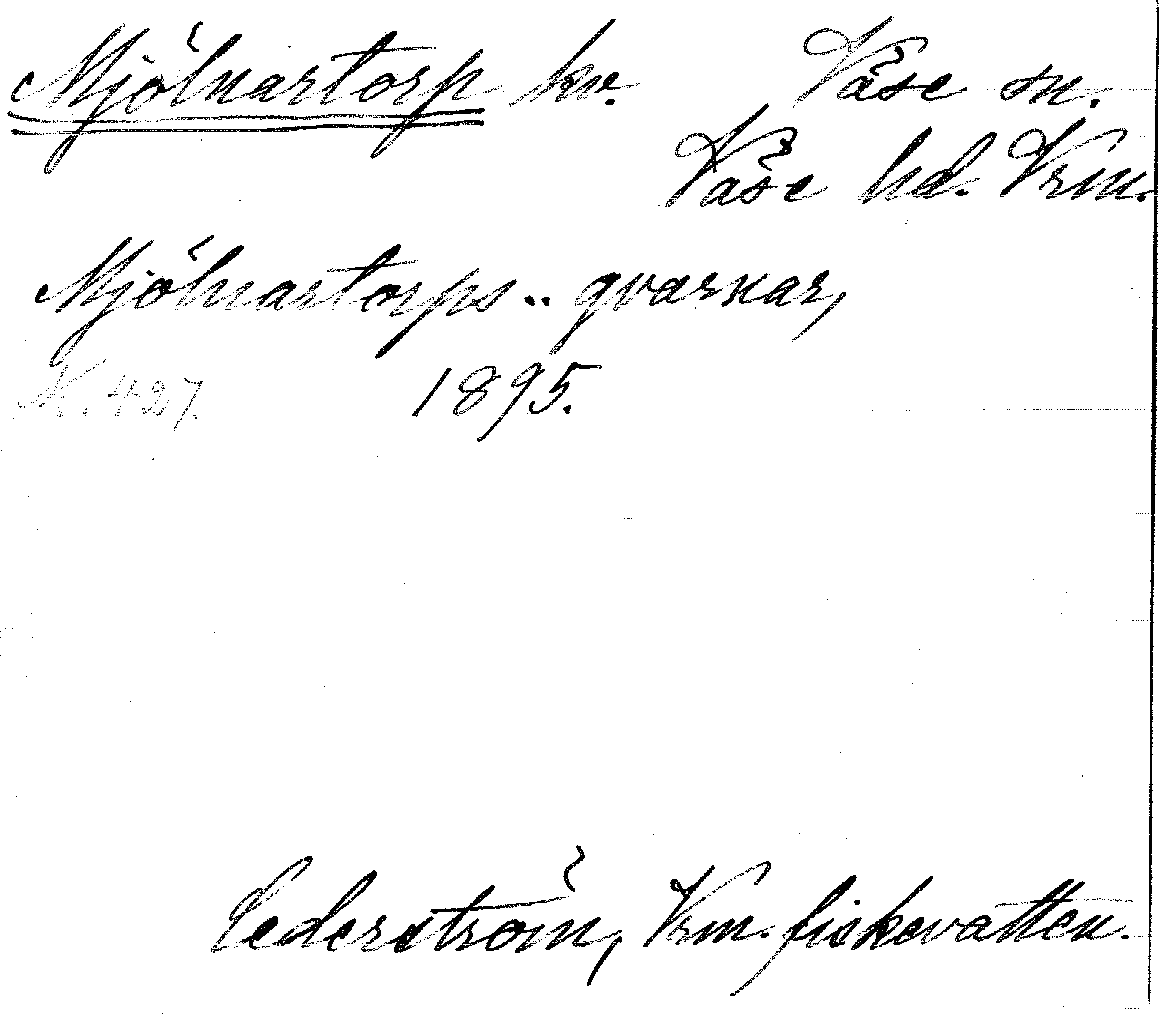 Mjölnartorp kv. Väse sn.
Väse hd. Vrm.
Mjölnartorps.. qvarnar,
K. 427. 1895.
Cederström, Vrm. fiskevatten.